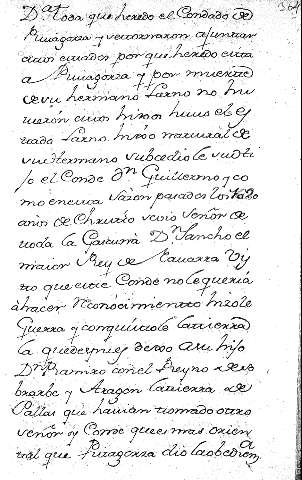 Dª Toda que heredo el Condado de
Ruiagorza y vectornaron ajuntar
cios estados por que heredo esta
a Ruiagorza y por muerte
de vu hermano Larno no hu
uieron cuios hijos huuo el es
tado Larno hijo natural de
vu Hermano subcediole vu hi
jo el Conde Dn Guillermo y co
mo en cuia Saçon pasados los
años de Christo veuio señor de
toda la Gascuña Dn Sancho el
maior Rey de Nauarra vis
to que este Conde no le queria
à hacer Reconocimiento hizole
Guerra y conquistole la tierra
la que despues dexo a su hijo
Dn Ramiro con el Reyno de so
brarbe y Aragon la tierra de
Pallas que hauian tomado otro
señor y Conde que es mas orien
tal que Riuagorza dio la obedien